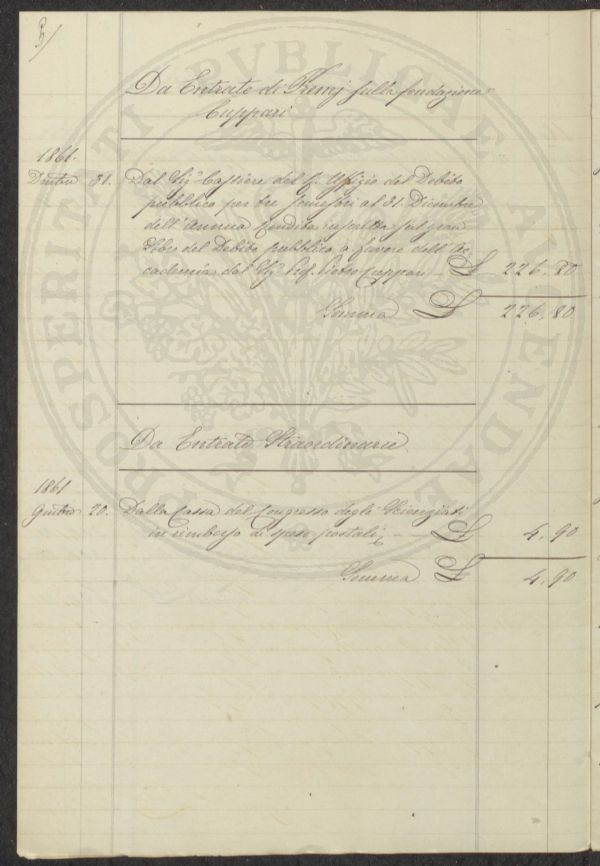 Da Entrate di Premj sulla fondazione
Cuppari
1861.
Dcmbre 31. Dal Sigr. Cassiere del R. Uffizio del Debito
pubblico per tre semestri al 31 Dicembre
dell'annua rendita inscritta sul gran
Libro del Debito pubblico a favore dell'Ac
cademia dal Sigr. Prof. Pietro Cuppari £ 226.80
Somma £ 226.80
Da Entrate Straordinarie
1861
20. Dalla Cassa del Congresso degli Scienziati
in rimborso di spese postali £ 4.90
Somma £ 4.90
PROSPERITATI PVBLICAE AVGENDAE